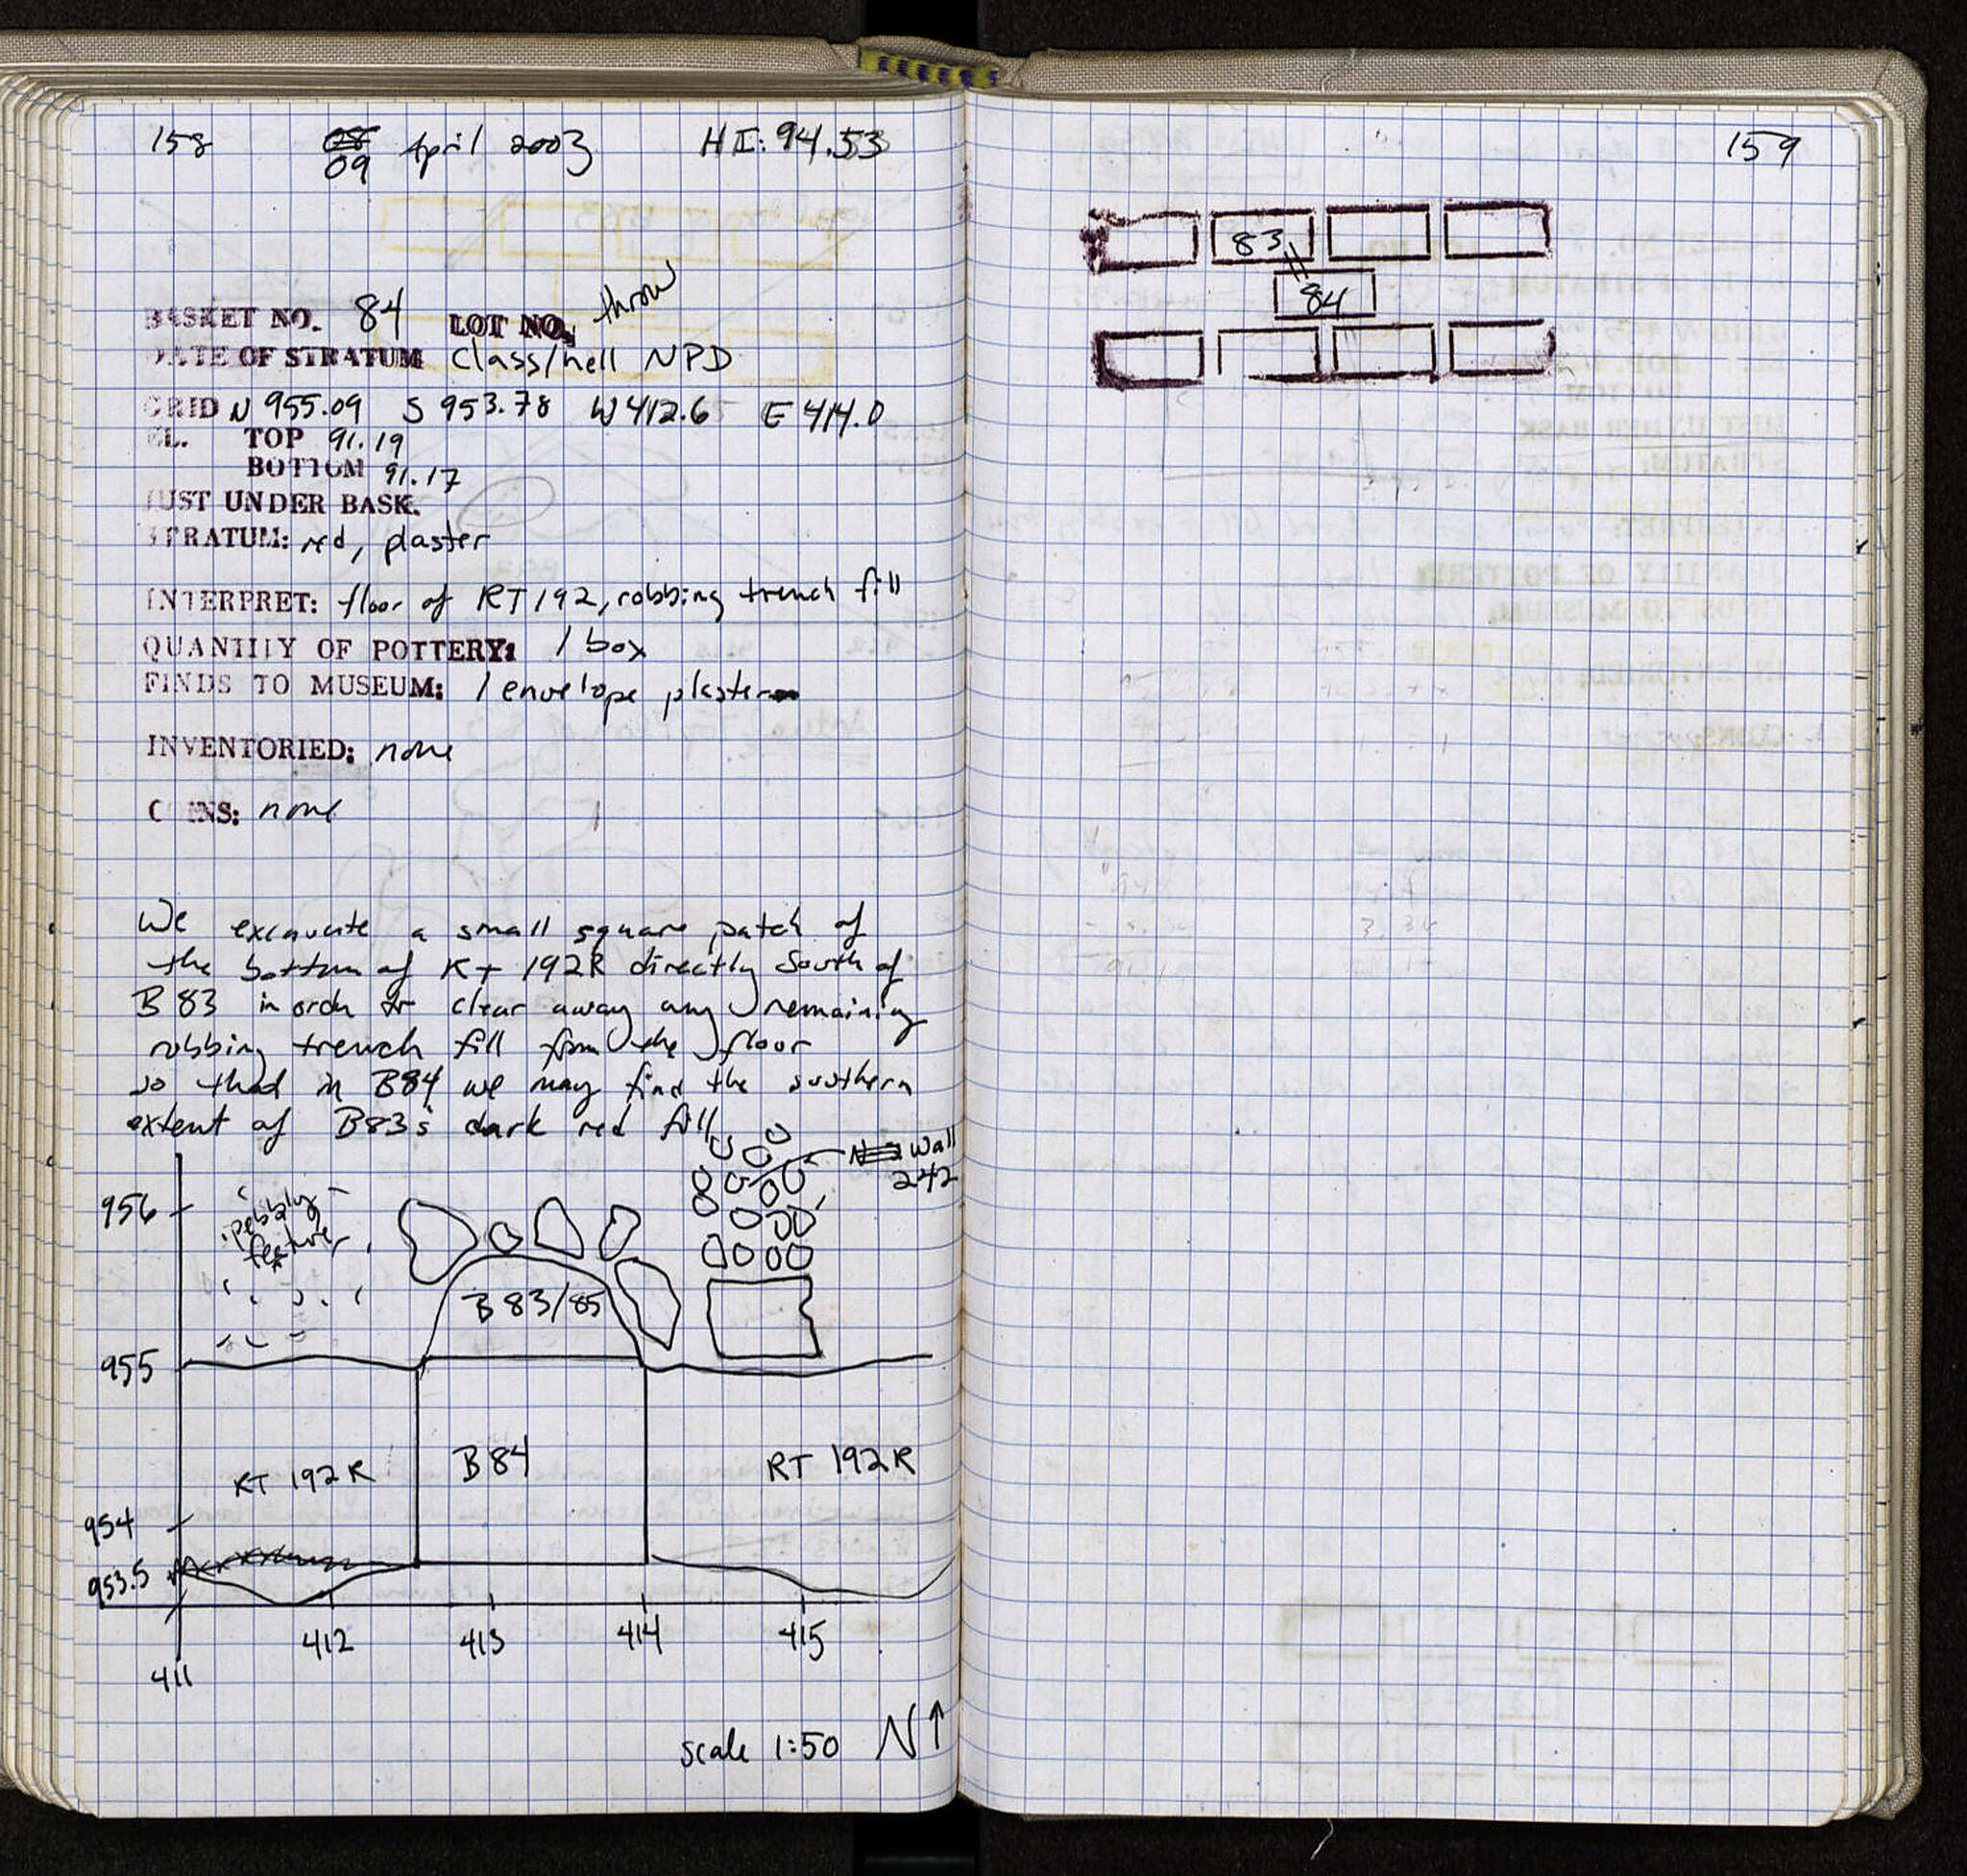 158 09 April 2003 HI: 94.53
BASKET NO. 84 LOT NO. throw
DATE OF STRATUM Class/hell NPD
GRID N 955.09 S 953.78 W 412.6 E 414.0
EL. TOP 91.19
BOTTOM 91.17
JUST UNDER BASK.
STRATUM: red, plaster
INTERPRET: floor of RT 192, robbing trench fill
QUANTITY OF POTTERY: 1 box
FINDS TO MUSEUM: 1 envelope plaster
INVENTORIED: none
COINS: none
We excavate a small square patch of
the bottom of RT 192R directly South of
B 83 in order to clear away any remaining
robbing trench fill from the floor
so that in B84 we may find the southern
extent of B83's dark red fill
Wall
242
956
pebbly
feature
B 83/85
955
RT 192 R
B 84
RT 192 R
954
953.5
411
412
413
414
415
scale 1:50 N
159
83
84